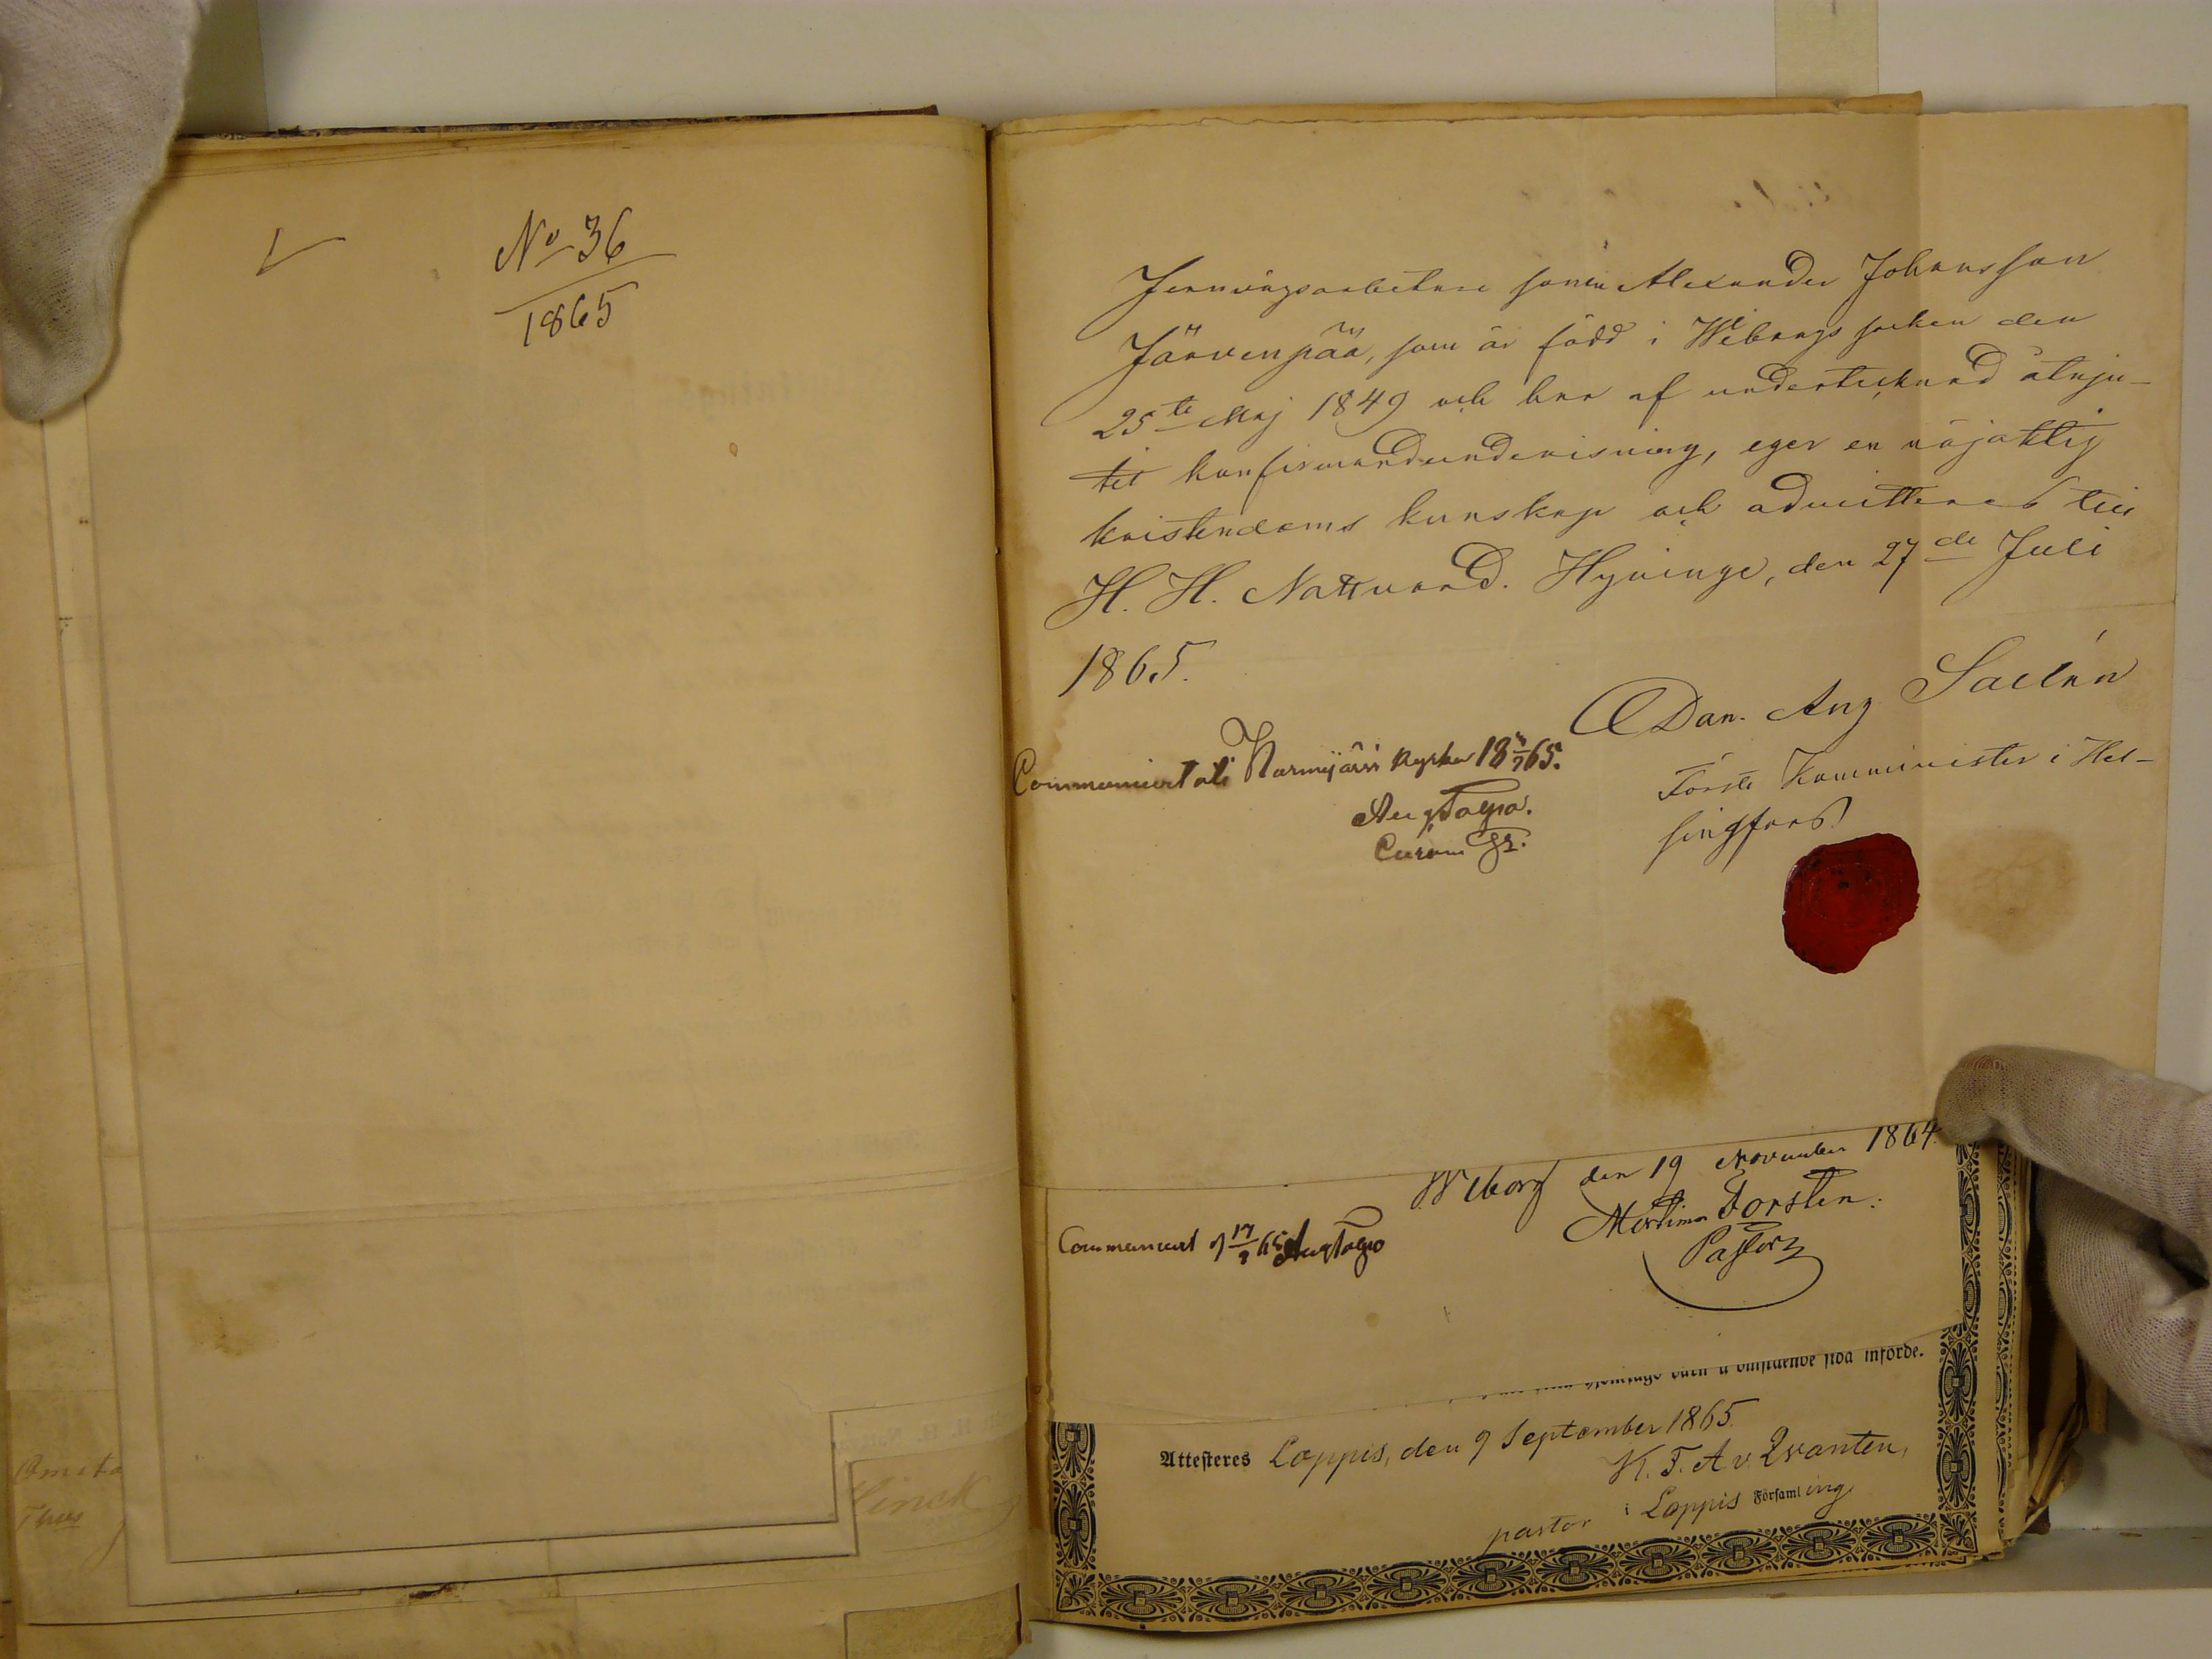 No 36
1865
Jernvägsarbetare sonen Alexander Johansson
Järvenpää, som är född i Wiborgs socken den
25te Maj 1849 och har af undertecknad åtnju-
tit konfirmandundervisning, eger en nöjaktig
kristendoms kunskap och admitteras till
H. H. Nattvard. Hyvinge, den 27de Juli
1865.
Dan. Aug Saelén
Förste Komminister i Hel-
singfors
Communicert uti Nurmijärvi Kyrka 18 65.
Aug
Wiborg den 19 November 1864.
Forstén.
Pastor
Communicert d 17 65 Aug
å omstående sida införde.
Attesteres Loppis, den 9 September 1865
K. F. A v. Qvanten,
pastor i Loppis Församling
Hinck